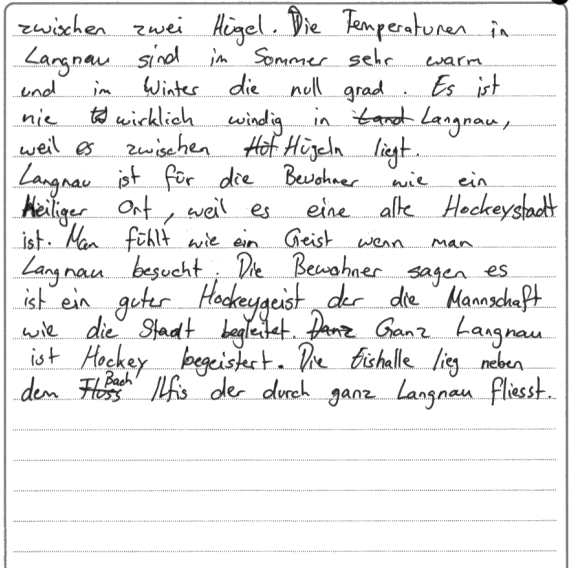 zwischen zwei Hügel. Die Temperaturen in
Langnau sind im Sommer sehr warm
und im Winter die null grad. Es ist
nie wirklich windig in Land Langnau,
weil es zwischen Hof Hügeln liegt.
Langnau ist für die Bewohner wie ein
Heiliger Ort, weil es eine alte Hockeystadt
ist. Man fühlt wie ein Geist wenn man
Langnau besucht. Die Bewohner sagen es
ist ein guter Hockeygeist der die Mannschaft
wie die Stadt begleitet. Danz Ganz Langnau
ist Hockey begeistert. Die Eishalle lieg neben
dem Fluss Bach Ilfis der durch ganz Langnau fliesst.